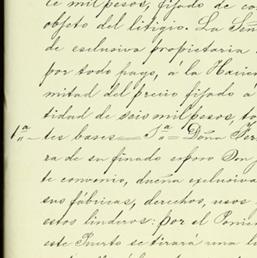 ce mil pesos, fijado de co
objeto del litigio. La Señ
de esclusiva propietaria
por todo pago, á la Hacien
mitad del precio fijado á
tidad de seis mil pesos, to
1ª tes bases — 1ª Doña Fer
ra de su finado esposo Don
te convenio, dueña exclusiva
sus fábricas, derechos, usos
estos linderos: por el Ponien
este Puerto se tirará una li